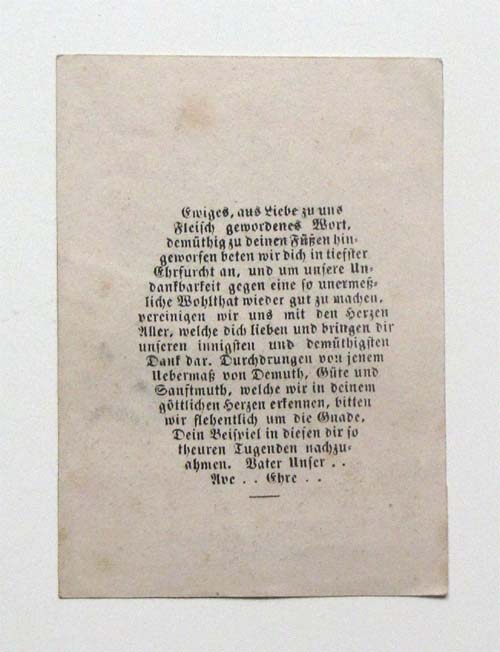 Ewiges, aus Liebe zu uns
Fleisch gewordenes Wort,
demüthig zu deinen Füßen hin-
geworfen beten wir dich in tiefster
Ehrfurcht an, und um unsere Un-
dankbarkeit gegen eine so unermeß-
liche Wohlthat wieder gut zu machen,
vereinigen wir uns mit den Herzen
Aller, welche dich lieben und bringen dir
unseren innigsten und demüthigsten
Dank dar. Durchdrungen von jenem
Uebermaß von Demuth, Güte und
Sanftmuth, welche wir in deinem
göttlichen Herzen erkennen, bitten
wir flehentlich um die Gnade,
Dein Beispiel in diesen dir so
theuren Tugenden nachzu-
ahmen. Vater Unser . .
Ave . . Ehre . .